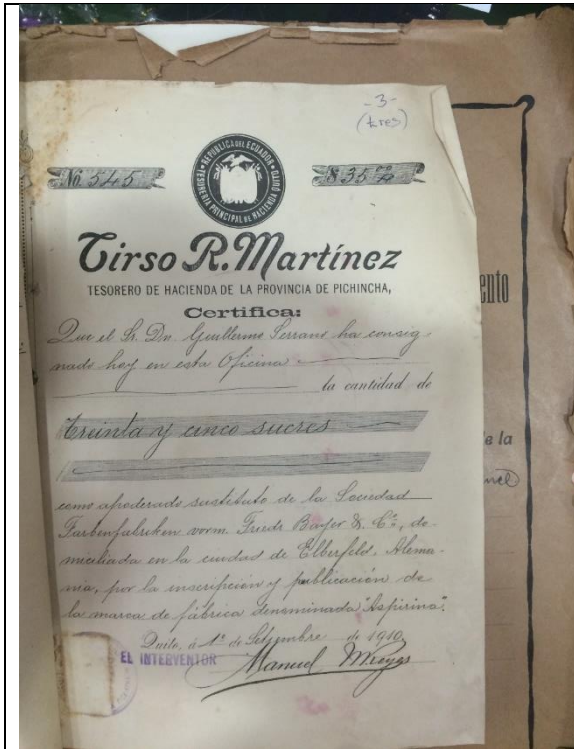 - 3 -
(tres)
REPUBLICA DEL ECUADOR
TESORERIA PRINCIPAL DE HACIENDA QUITO
No. 545
$ 35
Tirso R. Martínez
TESORERO DE HACIENDA DE LA PROVINCIA DE PICHINCHA,
Certifica:
Que el Sr. Dn. Guillermo Serrano ha consig-
nado hoy en esta Oficina
la cantidad de
Treinta y cinco sucres
como apoderado sustituto de la Sociedad
Farbenfabriken vorm. Friedr Bayer & Cº, do-
miciliada en la ciudad de Elberfeld, Alema-
nia, por la inscripción y publicación de
la marca de fábrica denominada "Aspirina".
Quito, á 1º de Setiembre de 1910
EL INTERVENTOR
Manuel
ento
e la